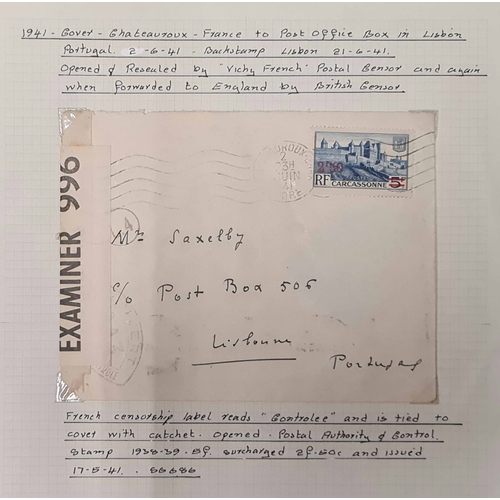 1941 - Cover - Chateauroux - France to Post Office Box in Lisbon
Portugal. 2-6-41 - Backstamp Lisbon 21-6-41.
Opened & Resealed by "Vichy French" Postal Censor and again
when forwarded to England by British Censor
EXAMINER 996
2
JUIN
41
2F50
RF CARCASSONNE 5F
Mr Saxelby
c/o Post Box 506
Lisbonne
Portugal
French censorship label reads "Controlee" and is tied to
cover with catchet. opened. Postal Authority & Control.
Stamp 1938-39. 5f. surcharged 2f.50c and issued
17-5-41. SG686